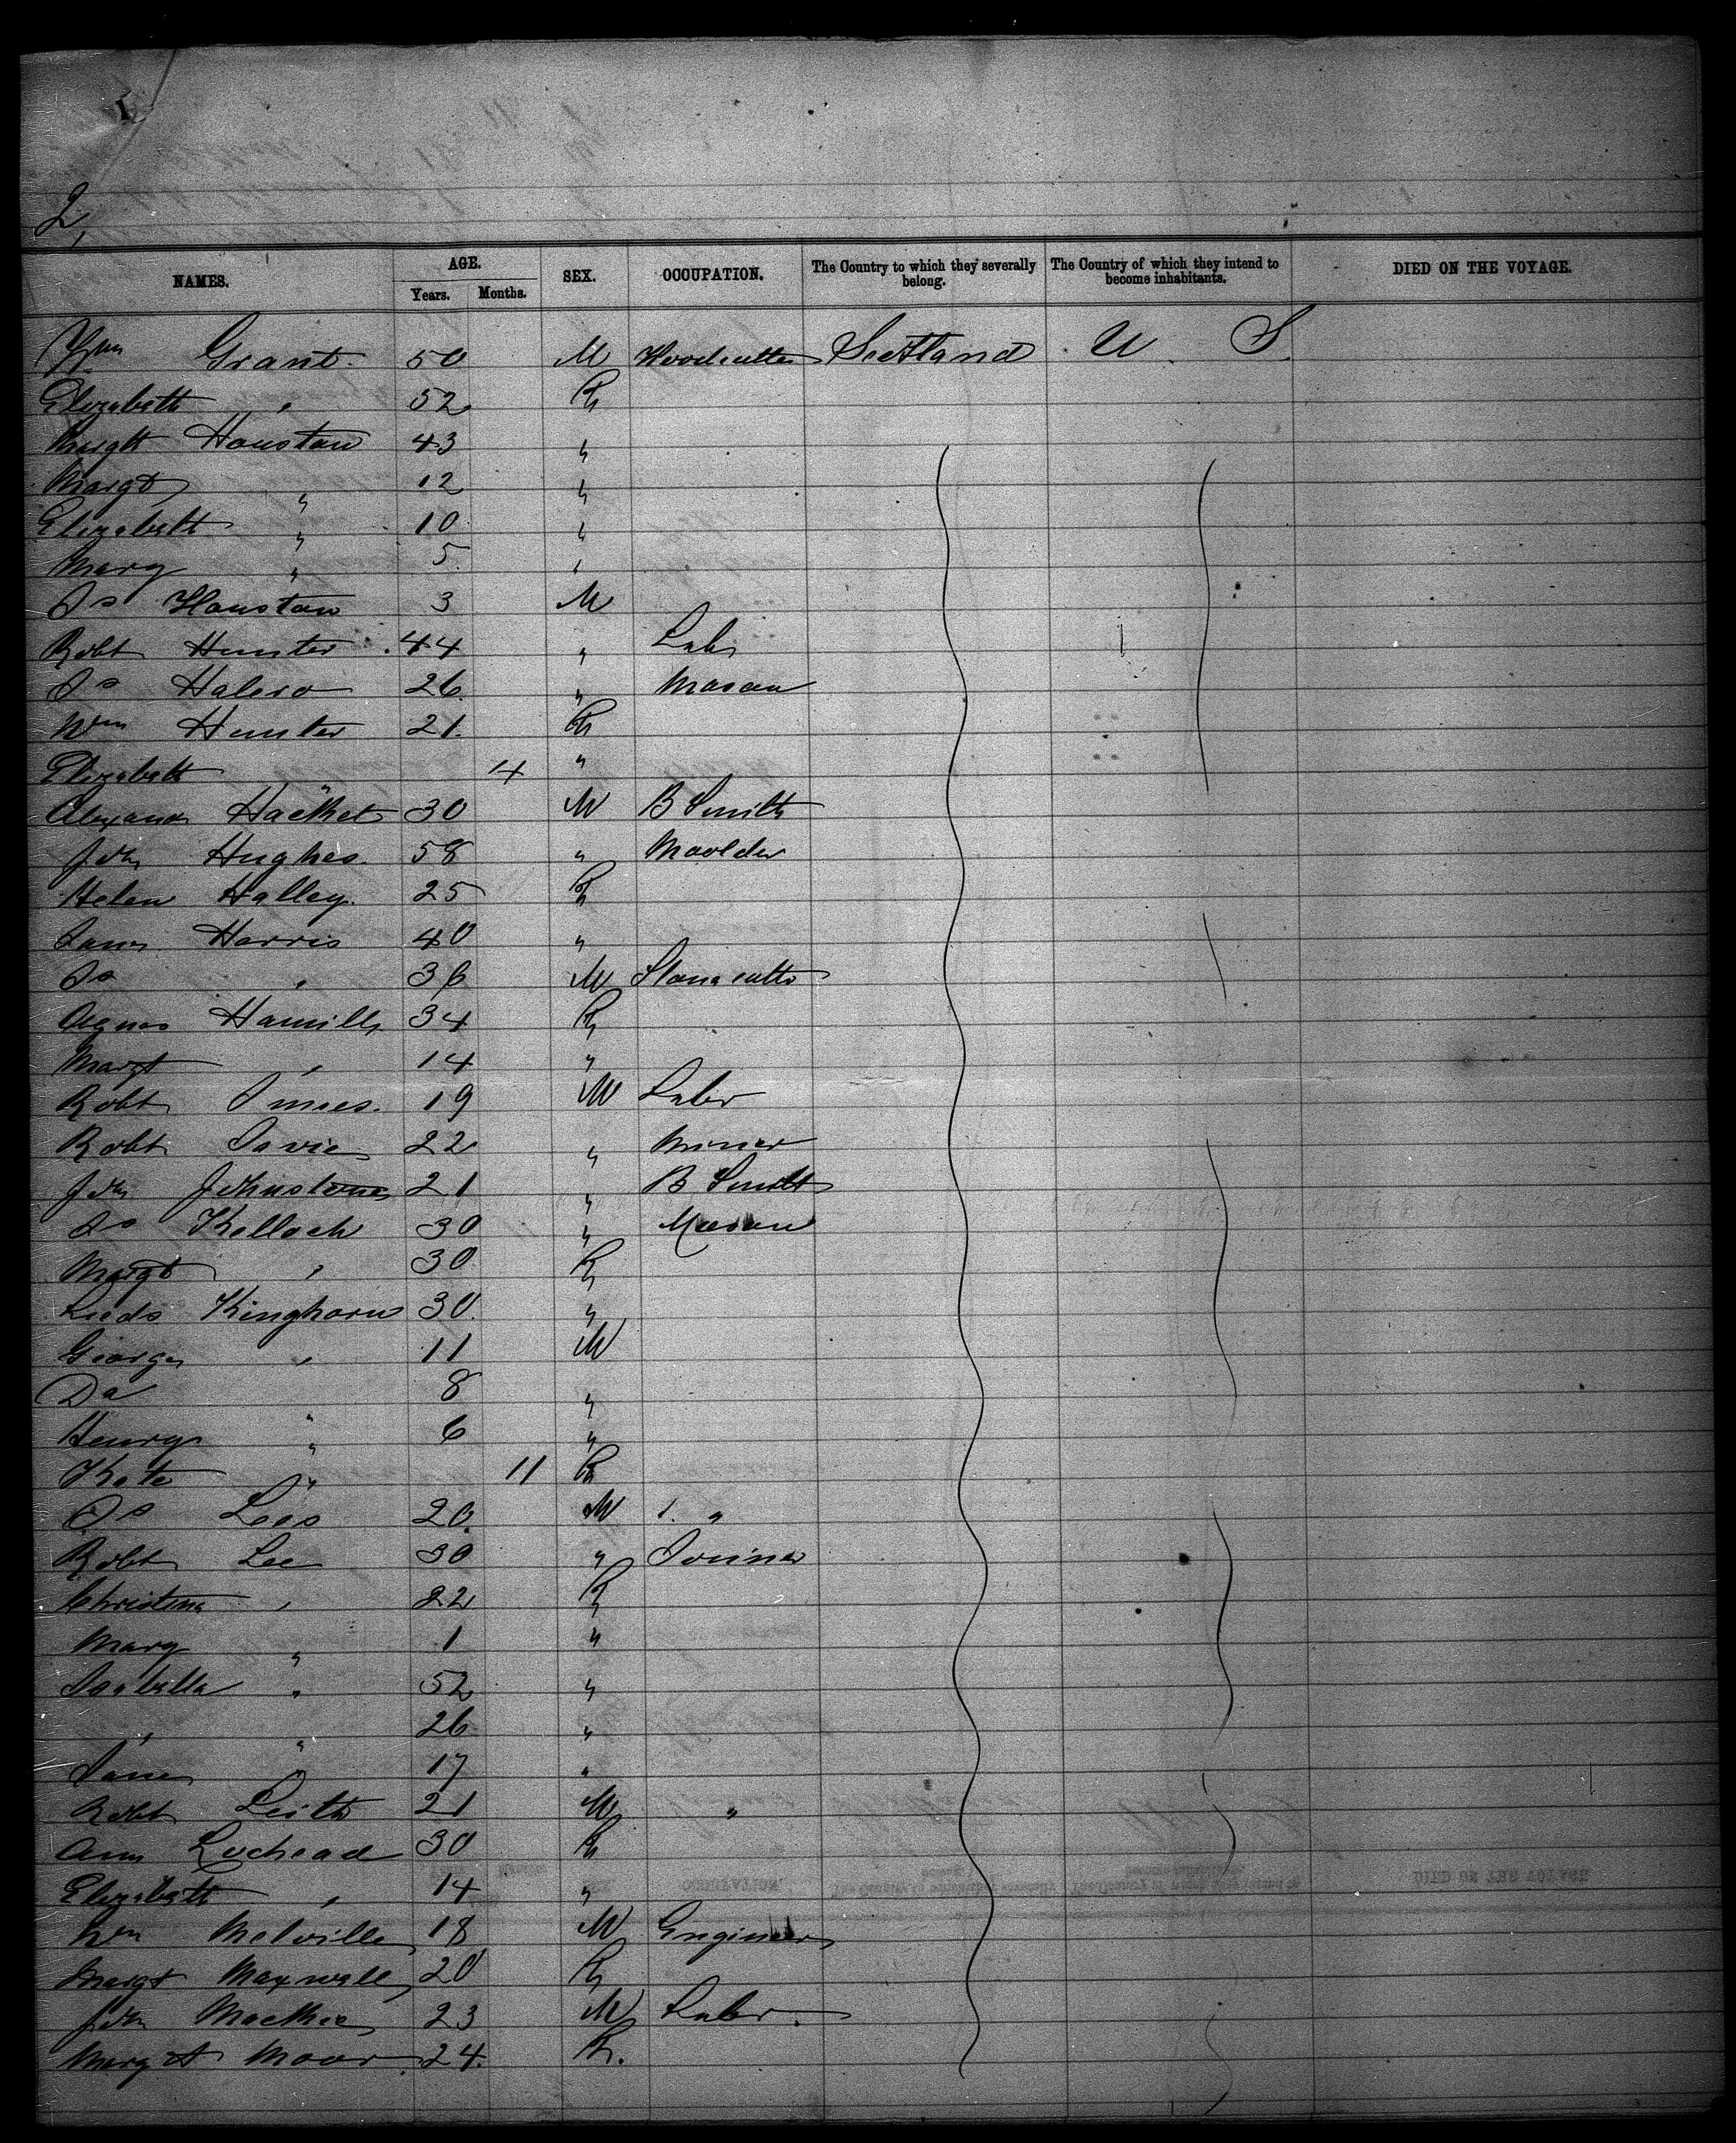 2,
NAMES. AGE. Years. Months. SEX. OCCUPATION. The Country to which they severally belong. The Country of which they intend to become inhabitants. DIED ON THE VOYAGE.
Wm Grant 50 M Woodcutter Scotland U. S.
Elizabeth " 52 F
Margtt Houstan 43 "
Margt " 12 "
Elizabeth " 10 "
Mary " 5 "
Js Houstan 3 M
Robt Hunter 44 " Labr
Js Halcro 26 " Mason
Wm Hunter 21 F
Elizabeth " 4 "
Alexandr Hacket 30 M B Smith
John Hughes 58 " Moolder
Helen Halley 25 F
James Harris 40 "
Js " 36 M Stonecutter
Agnes Hamill 34 F
Margt " 14 "
Robt Innes 19 M Labr
Robt Davie 22 " Miner
John Johnstone 21 " B Smith
Js Kelloch 30 " Mason
Margt " 30 F
Kinghorn 30 "
George " 11 M
Da " 8 "
Henry " 6 "
Kate " 11 F
Js Lees 20 M "
Robt Lee 30 " Joiner
Christina " 22 F
Mary " 1 "
Isabella " 52 "
" " 26 "
Jane " 17 "
Robt Leith 21 M "
Ann Lochead 30 F
Elizabeth " 14 "
Wm Melville 18 M Engineer
Margt Maxwell 20 F
John Mackie 23 M Labr
Margt Moor 24 F.